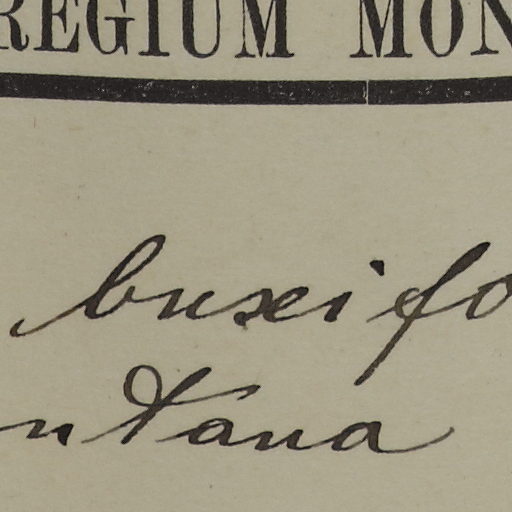 REGIUM MON
buxifo
ntana